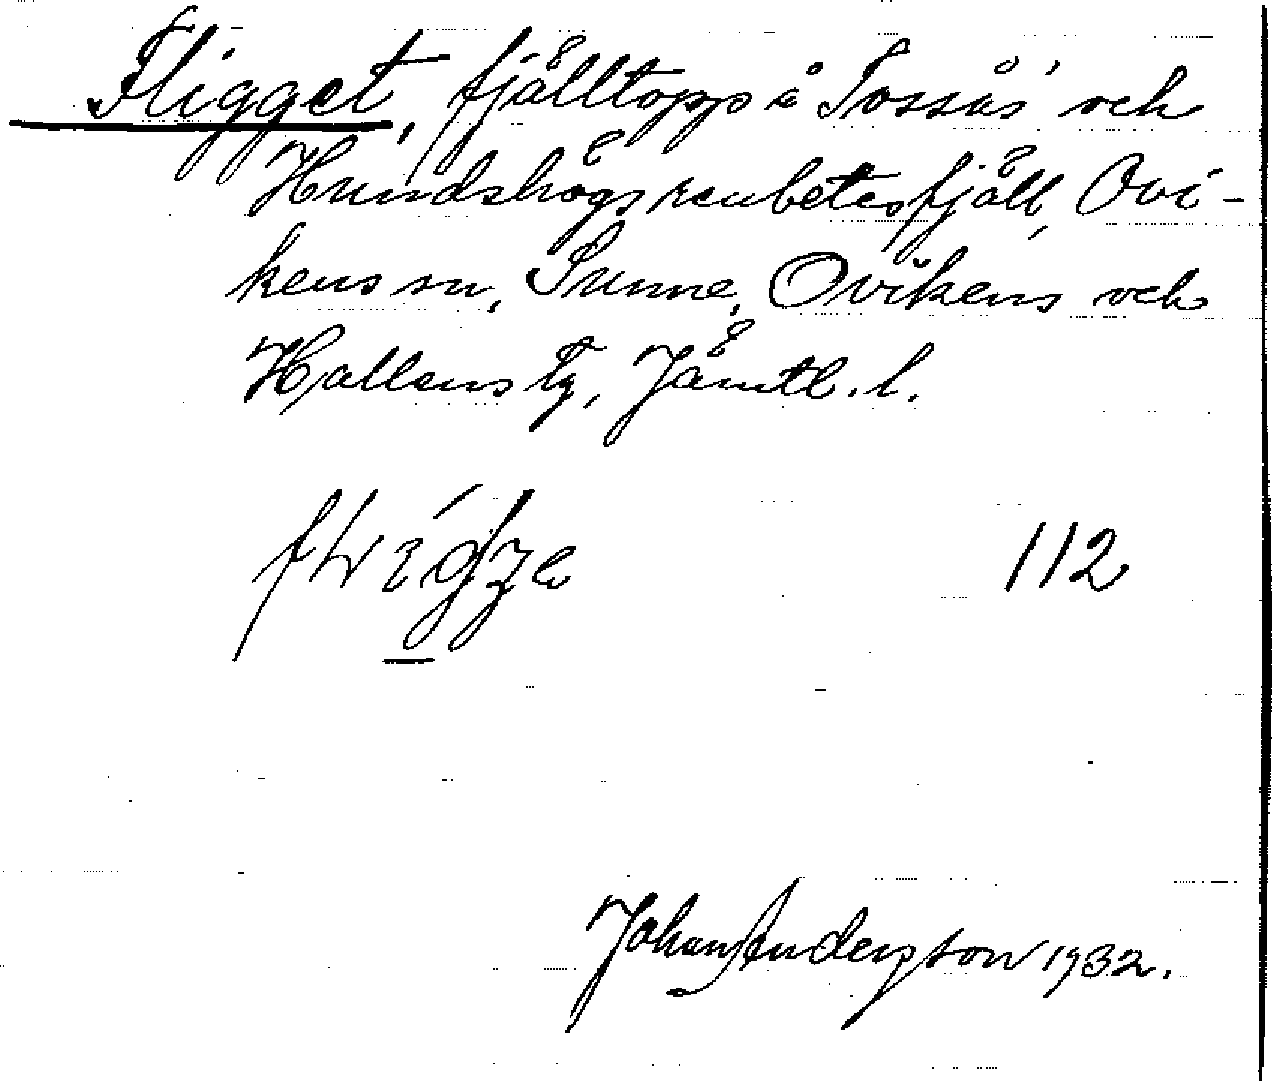 Fligget, fjälltopp å Tossås' och
Hundshögs renbetesfjäll, Ovi-
kens sn, Sunne, Ovikens och
Hallens tg, Jämtl. l.
112
Johan Anderson 1932.